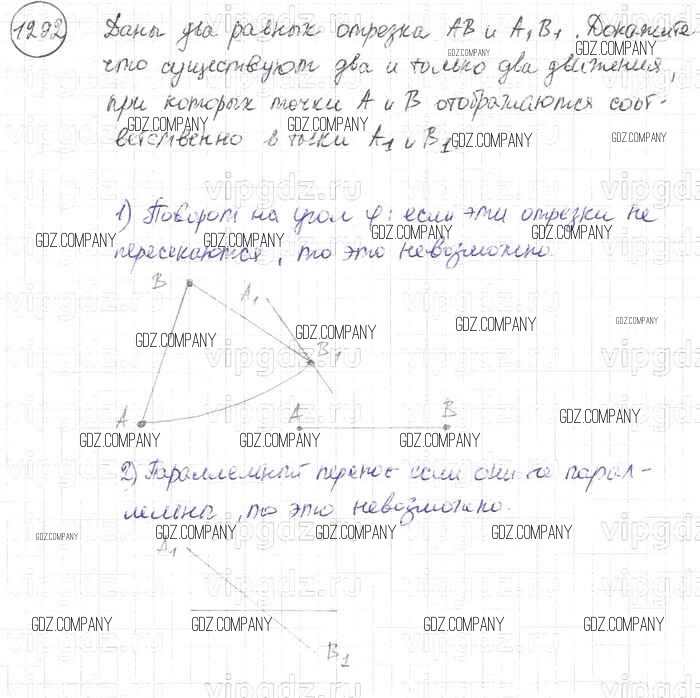 1292 Даны два равных отрезка AB и A1B1. Докажите
что существуют два и только два движения,
при которых точки A и B отображаются соот-
ветственно в точки A1 и B1
1) Поворот на угол φ: если эти отрезки не
пересекаются, то это невозможно
B
A1
B1
A
A
B
2) Параллельный перенос если они не парал-
лельны, то это невозможно.
A1
B1
GDZ.COMPANY
vipgdz.ru